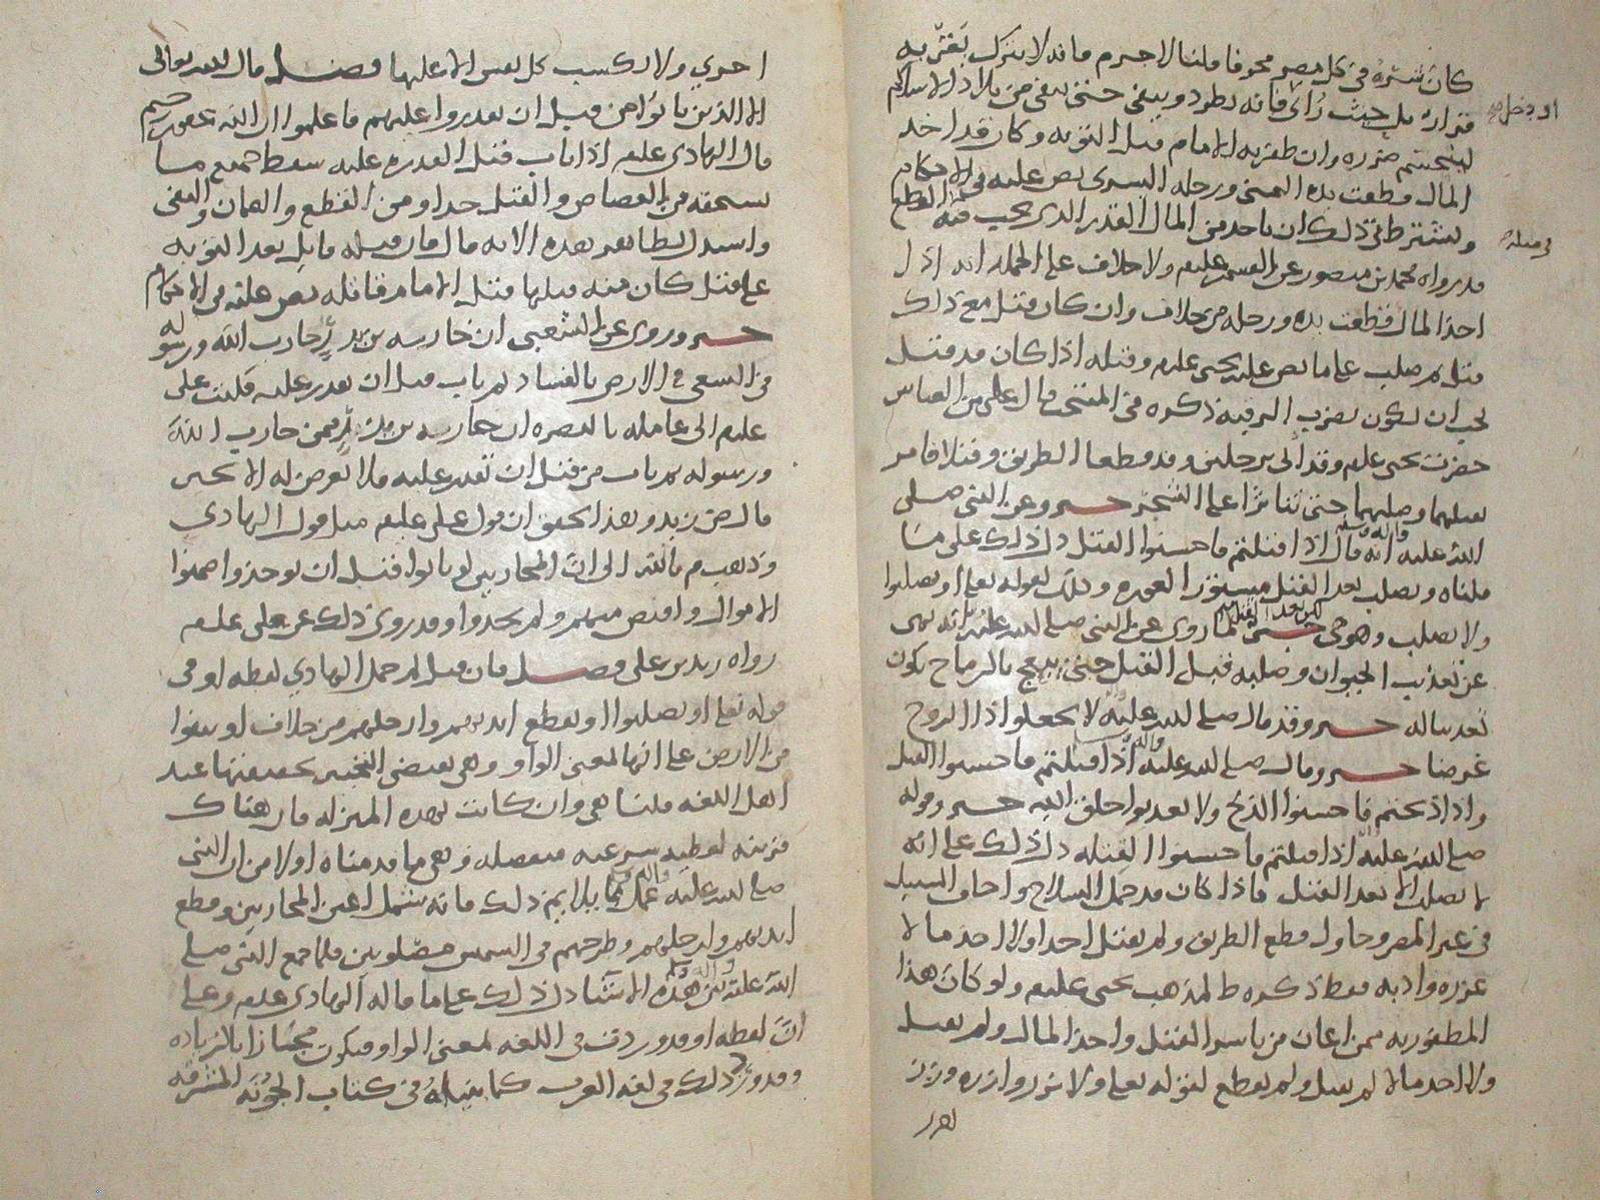 كان شره في كل مصر مخوفا قلنا لا جرم فانه لا يترك يقر به
قراره بل حيث رأى فانه يطرد وينفى حتى ينفى من بلاد الاسلام
او دخل
لينحسم ضرره وان ظفر به الامام قبل التوبه وكان قد اخذ
المال قطعت يده اليمنى ورجله اليسرى نص عليه في الاحكام
ويشترط في ذلك ان ياخذ من المال القدر الذي يجب فيه القطع
في مثله
قد رواه محمد بن منصور عن القسم عليلم ولا خلاف على الجمله انه اذا
اخذ المال قطعت يده ورجله من خلاف وان كان قتل مع ذلك
قتل ثم صلب على ما نص عليه يحيى عليلم وقتله اذا كان قد قتل
يجب ان يكون بضرب الرقبه ذكره في المنتخب قال علي بن العباس
حضرت يحيى عليلم وقد أتي برجلين وقد قطعا الطريق وقتلا فامر
بقتلهما وصلبهما حتى تناثرا على الشجر خبر وعن النبي صلى
الله عليه واله انه قال اذا قتلتم فاحسنوا القتل دل ذلك على ما
قلناه ويصلب بعد القتل مستور العوره وذلك لقوله تعلى او يصلبوا
ولا يصلب وهو حي لكن بعد القتل خبر لما روي عن النبي صلى الله عليه انه نهى
عن تعذيب الحيوان وصلبه قبل القتل حتى يبعج بالرماح يكون
تعذيبا له خبر وقد قال صلى الله عليه واله لا تجعلوا ذا الروح
غرضا خبر وقال صلى الله عليه واله اذا قتلتم فاحسنوا القتل
واذا ذبحتم فاحسنوا الذبح ولا تعذبوا خلق الله خبر وقوله
صلى الله عليه واله اذا قتلتم فاحسنوا القتله دل ذلك على انه
لا يصلب الا بعد القتل فاذا كان قد حمل السلاح واخاف السبيل
في غير المصر وحاول قطع الطريق ولم يقتل احدا ولا اخذ مالا
عزره وادبه فقط ذكره ط لمذهب يحيى عليلم ولو كان هذا
المظفور به ممن اعان من باشر القتل واخذ المال ولم يقتل
ولا اخذ مالا لم يقتل ولم يقطع لقوله تعلى ولا تزر وازره وزر
اخرى
اخرى ولا تكسب كل نفس الا عليها فصل قال الله تعالى
الا الذين تابوا من قبل ان تقدروا عليهم فاعلموا ان الله غفور رحيم
قال الهادي عليلم اذا تاب قبل القدره عليه سقط جميع ما
يستحقه من القصاص والقتل حدا ومن القطع والضمان والنفي
واستدل بظاهر هذه الايه قال فان قتله قاتل بعد التوبه
على قتل كان منه قبلها قتل الامام قاتله نص عليه في الاحكام
خبر وروي عن الشعبي ان حارثه بن بدر حارب الله ورسوله
في السعي في الارض بالفساد ثم تاب قبل ان يقدر عليه فكتب علي
عليلم الى عامله بالبصره ان حارثه بن بدر ممن حارب الله
ورسوله ثم تاب من قبل ان نقدر عليه فلا تعرض له الا بخير
قال ص زيد وهذا يحقق ان قول علي عليلم مثل قول الهادي
وذهب م بالله الى ان المحاربين لو تابوا قبل ان يوخذوا ضمنوا
الاموال واقتص منهم ولم يحدوا وقد روي ذلك عن علي عليلم
رواه زيد بن علي فصل فان قيل لم حمل الهادي لفظه او في
قوله تعلى او يصلبوا او تقطع ايديهم وارجلهم من خلاف او ينفوا
من الارض على انها بمعنى الواو وهي تقتضي التخيير بحقيقتها عند
اهل اللغه قلنا هي وان كانت بهذه المنزله فان هناك
قرينه لفظيه شرعيه منفصله وهي ما قدمناه اولا من ان النبي
صلى الله عليه واله عمل بما يلايم ذلك فانه سمل اعين المحاربين وقطع
ايديهم وارجلهم وطرحهم في الشمس مصلوبين فلما جمع النبي صلى
الله عليه واله بين هذه الاشيا دل ذلك على ما قاله الهادي عليلم وعلى
ان لفظه او قد وردت في اللغه بمعنى الواو فيكون مجازا بالزياده
وقد ورد ذلك في لغه العرب كما بيناه في كتاب الجونه المشرقه